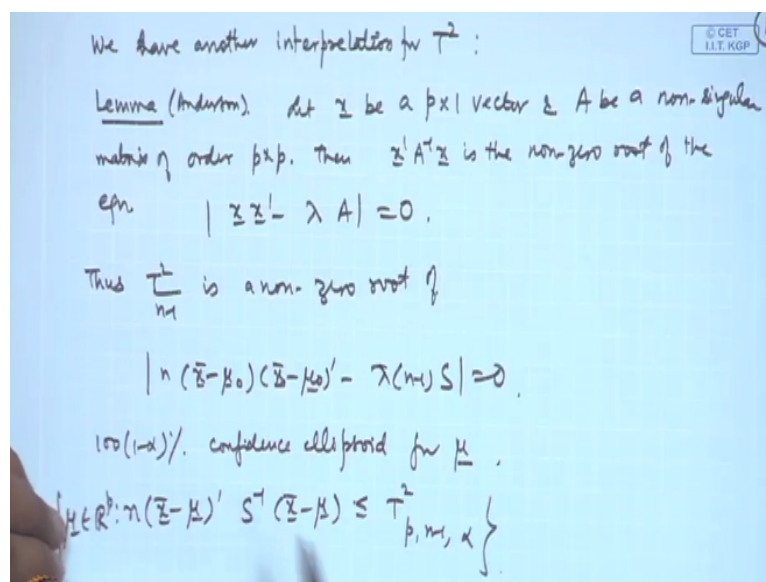 © CET
I.I.T. KGP
We have another interpretation for T² :
Lemma (Anderson). Let x be a p×1 vector & A be a non-singular
matrix of order p×p. Then x' A⁻¹ x is the non-zero root of the
eqn. | x x' − λ A | = 0.
Thus T²/n-1 is a non-zero root of
| n (x̄ − μ₀) (x̄ − μ₀)' − λ (n-1) S | = 0.
100(1-α)%. confidence ellipsoid for μ.
{ μ ∈ ℝᵖ : n (x̄ − μ)' S⁻¹ (x̄ − μ) ≤ T²p, n-1, α }